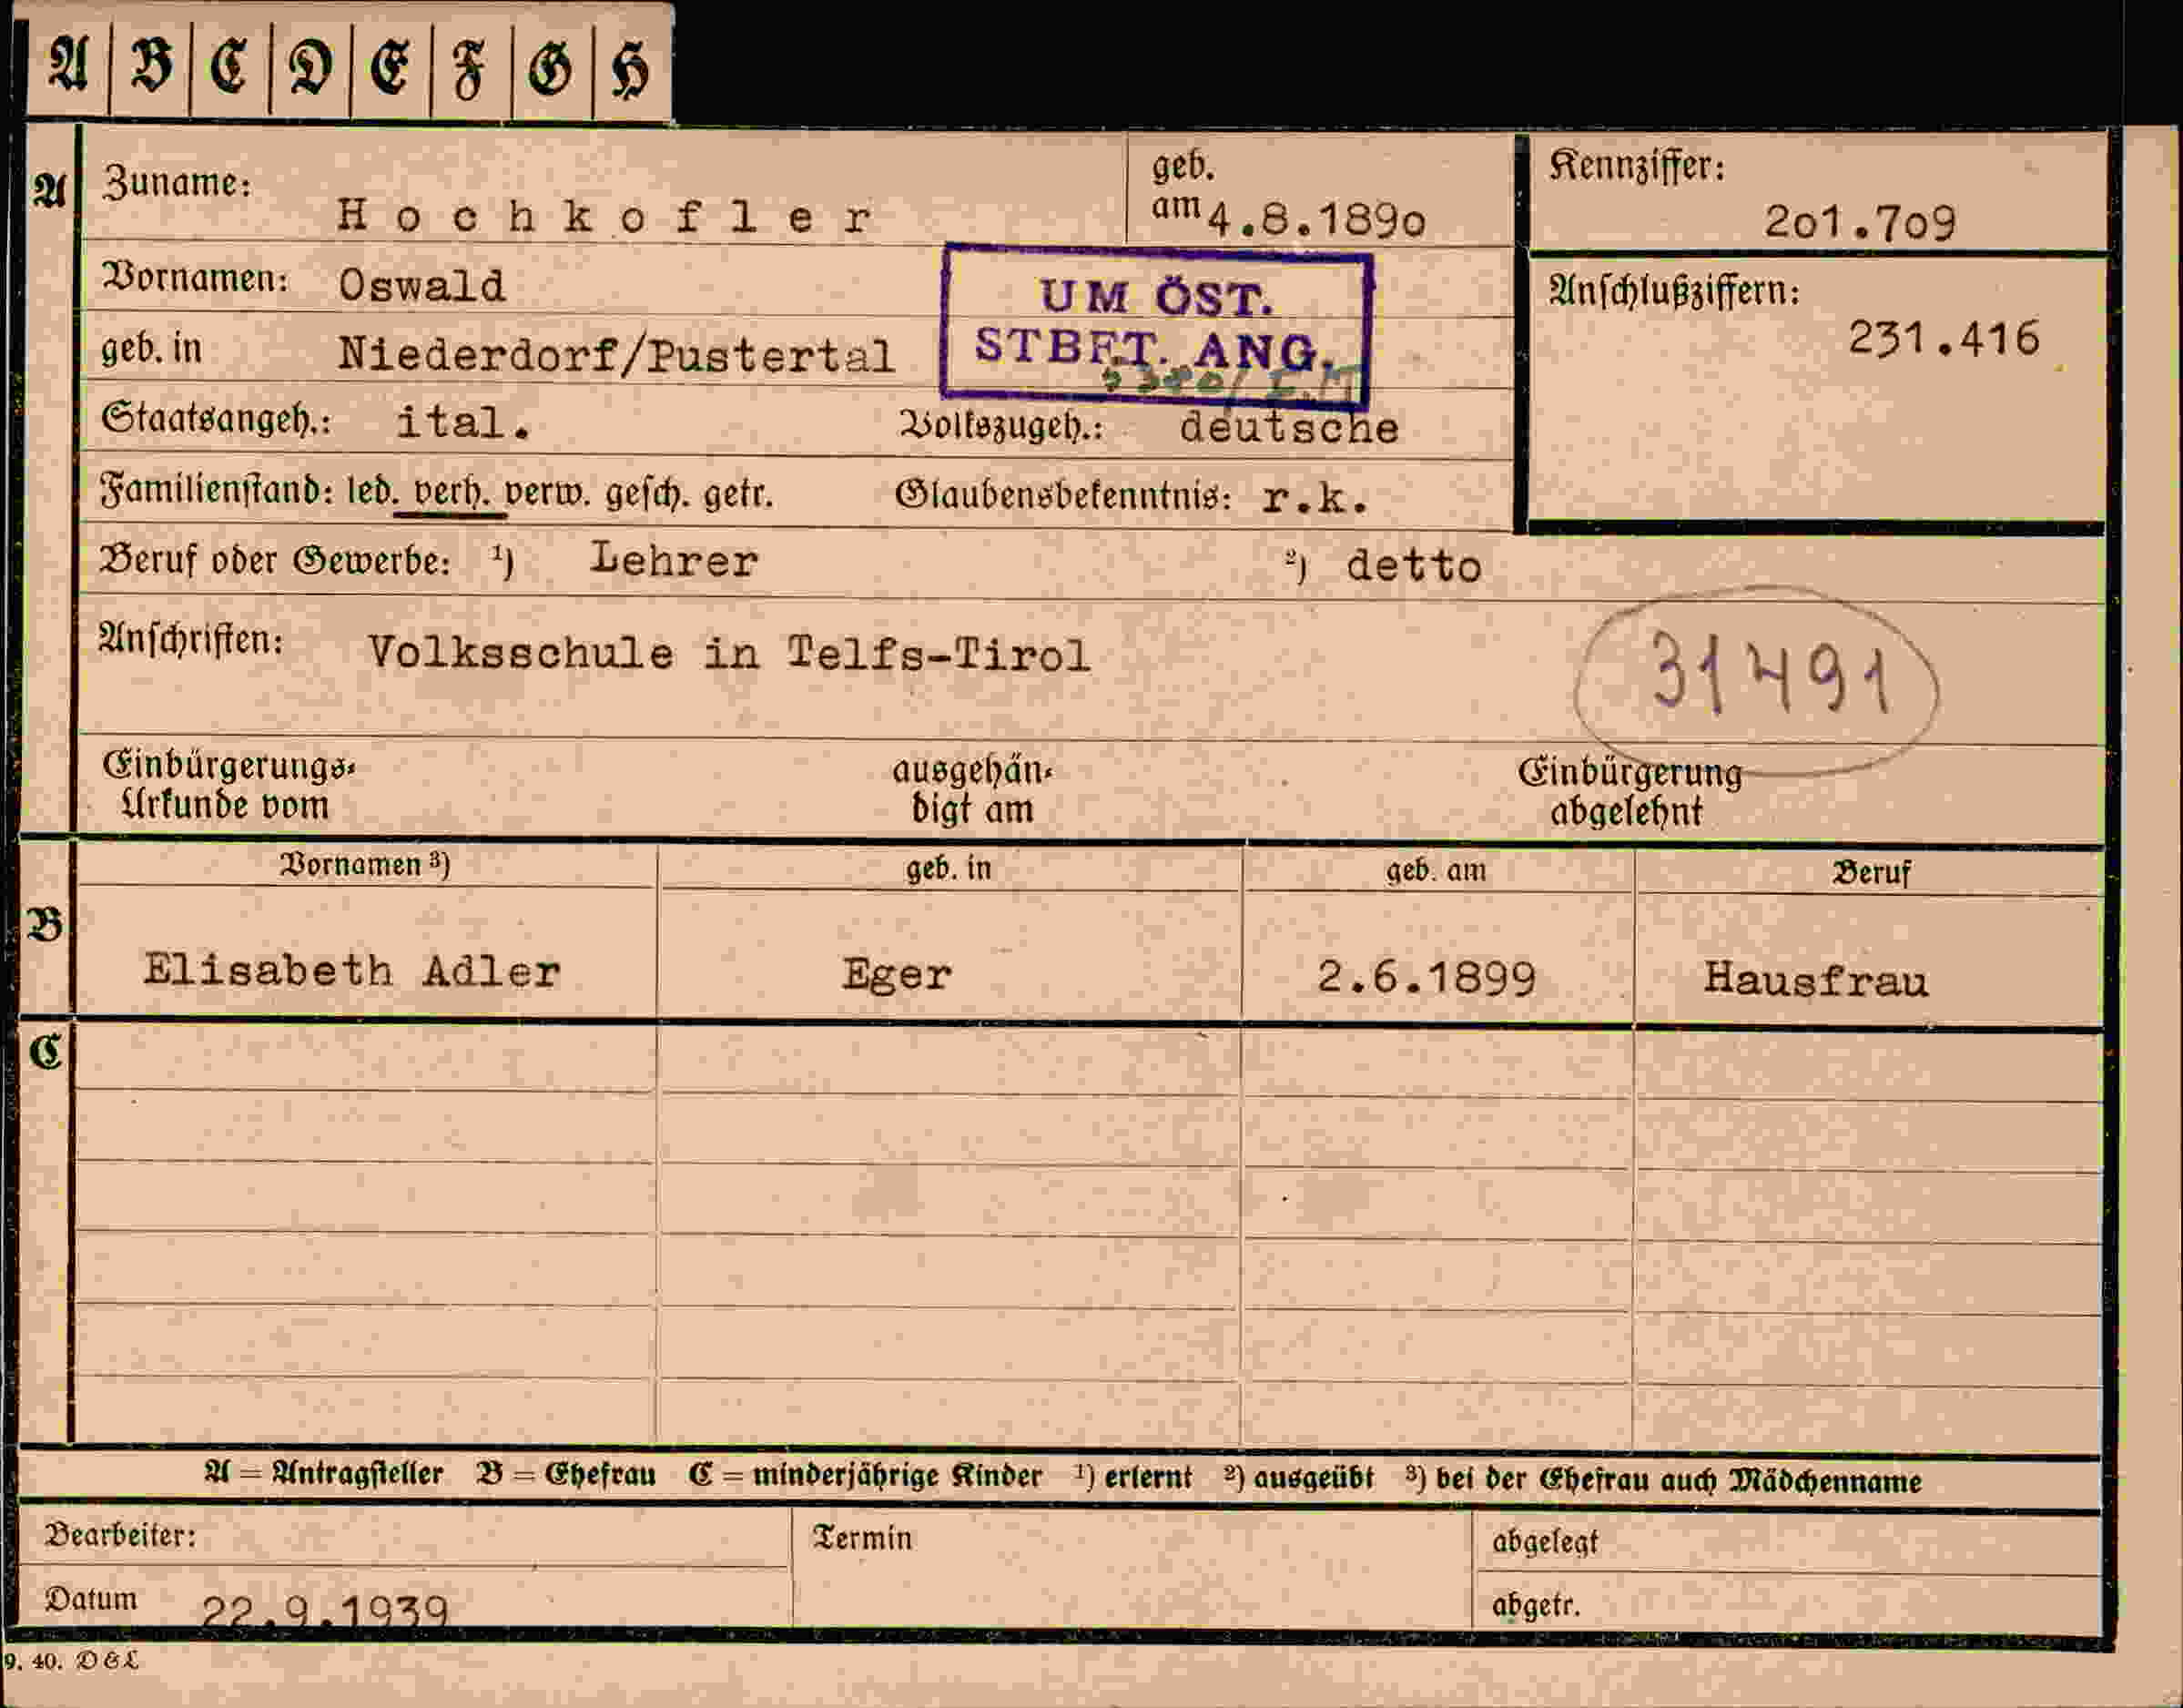 A B C D E F G H
A Zuname: Hochkofler geb. am 4.8.1890 Kennziffer: 201.709
Vornamen: Oswald UM ÖST. Anschlußziffern:
geb. in Niederdorf/Pustertal STBFT. ANG. 231.416
Staatsangeh.: ital. Volkszugeh.: deutsche
Familienstand: led. verh. verw. gesch. getr. Glaubensbekenntnis: r.k.
Beruf oder Gewerbe: ¹) Lehrer ²) detto
Anschriften: Volksschule in Telfs-Tirol 31491
Einbürgerungs- ausgehän- Einbürgerung
Urkunde vom digt am abgelehnt
Vornamen ³) geb. in geb. am Beruf
B Elisabeth Adler Eger 2.6.1899 Hausfrau
C
A = Antragsteller B = Ehefrau C = minderjährige Kinder ¹) erlernt ²) ausgeübt ³) bei der Ehefrau auch Mädchenname
Bearbeiter: Termin abgelegt
Datum 22.9.1939 abgetr.
9. 40. D&L